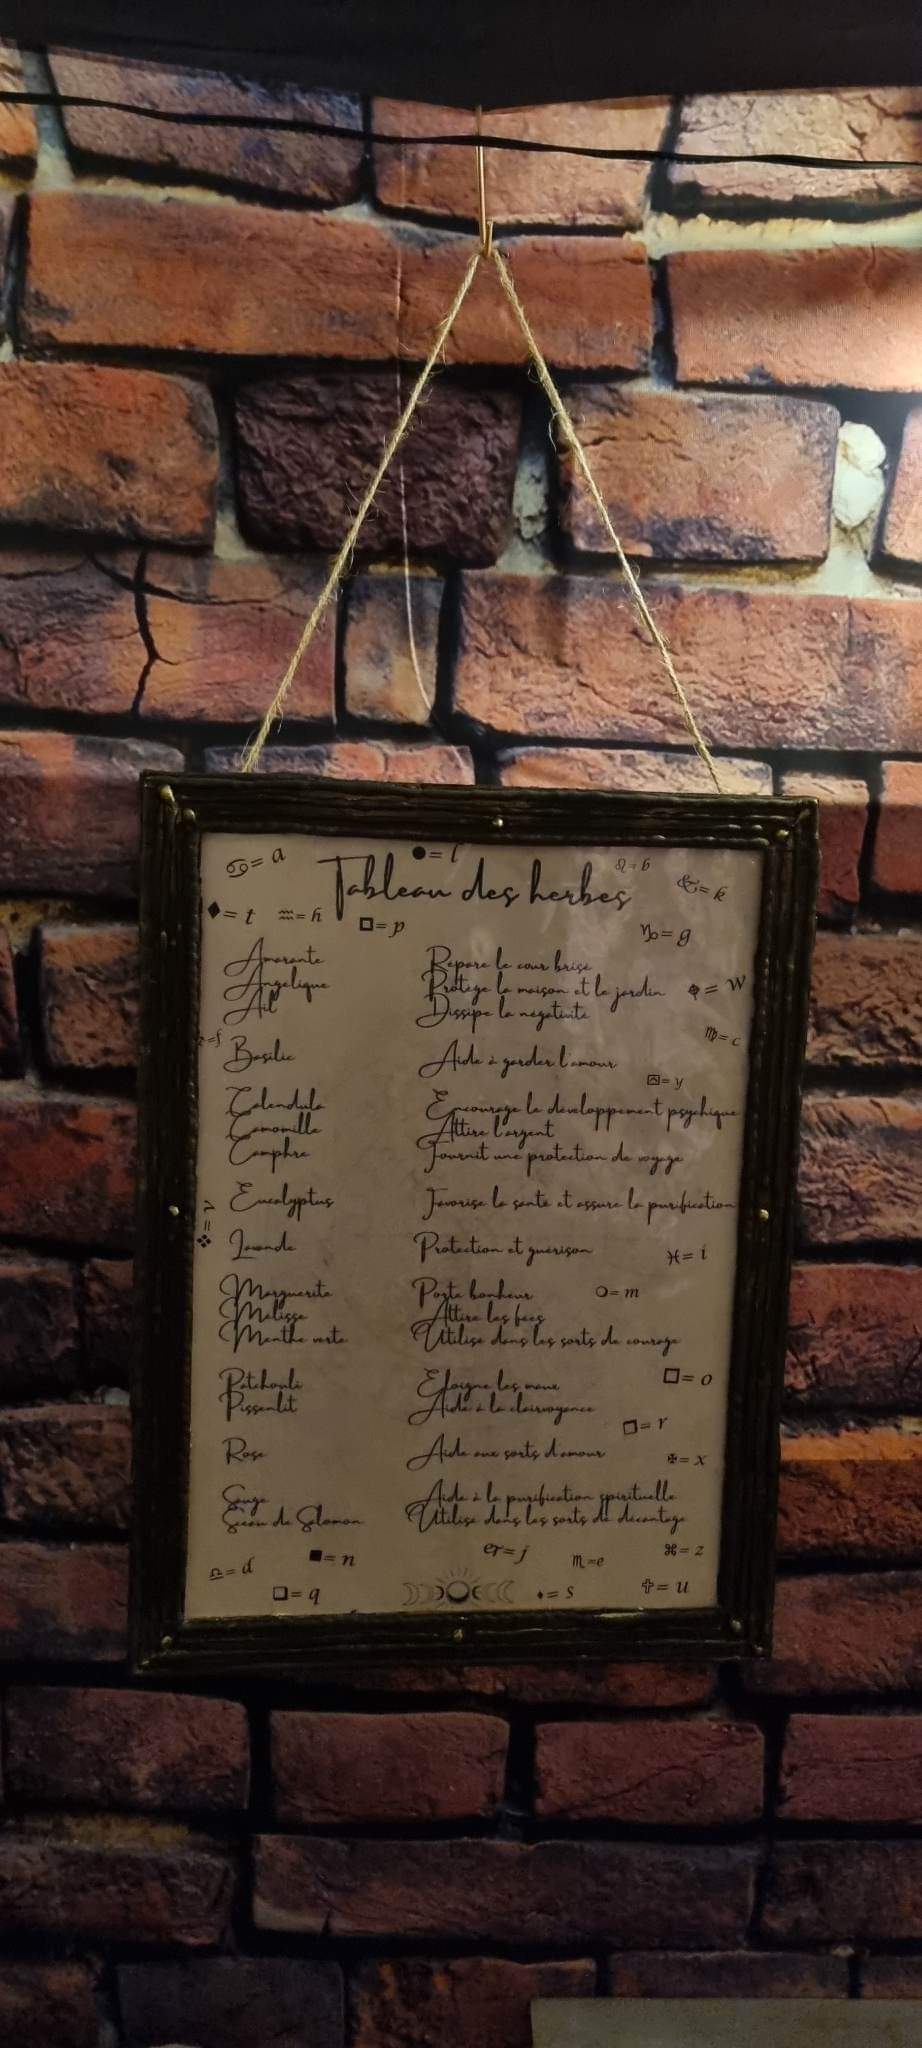 ♋= a
●= l
♌= b
Tableau des herbes
&= k
♦= t
♒= h
◘= p
♑= g
Amarante Répare le cœur brisé
Angélique Protège la maison et le jardin
= w
Ail Dissipe la négativité
♍= c
=f
Basilic Aide à garder l'amour
⍓= y
Calendula Encourage le développement psychique
Camomille Attire l'argent
Camphre Fournit une protection de voyage
Eucalyptus Favorise la santé et assure la purification
❖= v
Lavande Protection et guérison
♓= i
Marguerite Porte bonheur
❍= m
Mélisse Attire les fées
Menthe verte Utilisé dans les sorts de courage
Patchouli Eloigne les maux
□= o
Pissenlit Aide à la clairvoyance
❑= r
Rose Aide aux sorts d'amour
✠= x
Sauge Aide à la purification spirituelle
Sceau de Salomon Utilisé dans les sorts de décantage
♎= d
■= n
er= j
♏=e
⌘= z
❑= q
⬧= s
✞= u